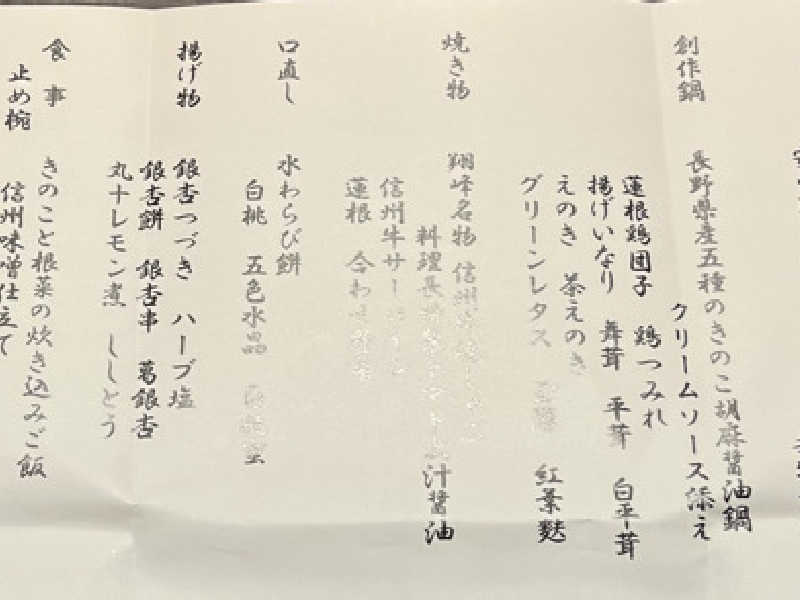 創作鍋
長野県産五種のきのこ胡麻醤油鍋
クリームソース添え
蓮根鶏団子 鶏つみれ
揚げいなり 舞茸 平茸 白平茸
えのき 茶えのき
グリーンレタス 紅葉麩
焼き物
翔峰名物 信州
料理長 汁醤油
信州牛サー
蓮根 合わ
口直し
水わらび餅
白桃 五色水晶
揚げ物
銀杏つづき ハーブ塩
銀杏餅 銀杏串 葛銀杏
丸十レモン煮 ししとう
食事
きのこと根菜の炊き込みご飯
止め椀
信州味噌仕立て